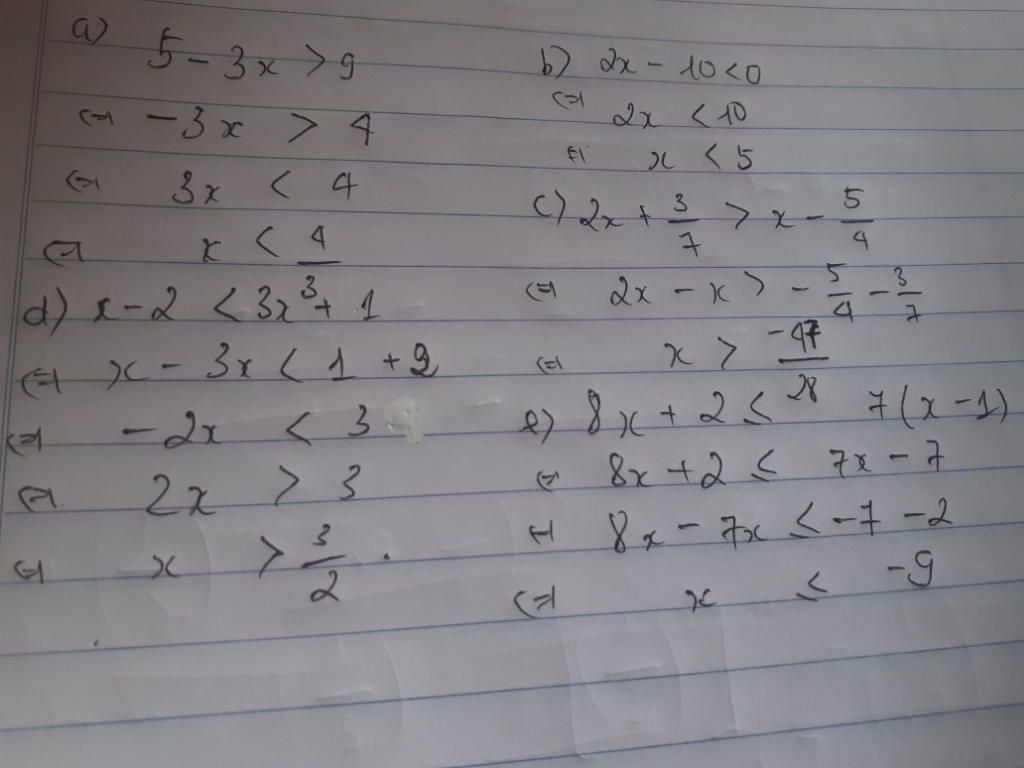 a) 5 - 3x > 9
⇔ -3x > 4
⇔ 3x < 4
⇔ x < 4/3
d) x - 2 < 3x + 1
⇔ x - 3x < 1 + 2
⇔ -2x < 3
⇔ 2x > 3
⇔ x > 3/2 .
b) 2x - 10 < 0
⇔ 2x < 10
⇔ x < 5
c) 2x + 3/7 > x - 5/4
⇔ 2x - x > - 5/4 - 3/7
⇔ x > -47/28
e) 8x + 2 ≤ 7(x - 1)
⇔ 8x + 2 ≤ 7x - 7
⇔ 8x - 7x ≤ -7 - 2
⇔ x ≤ -9